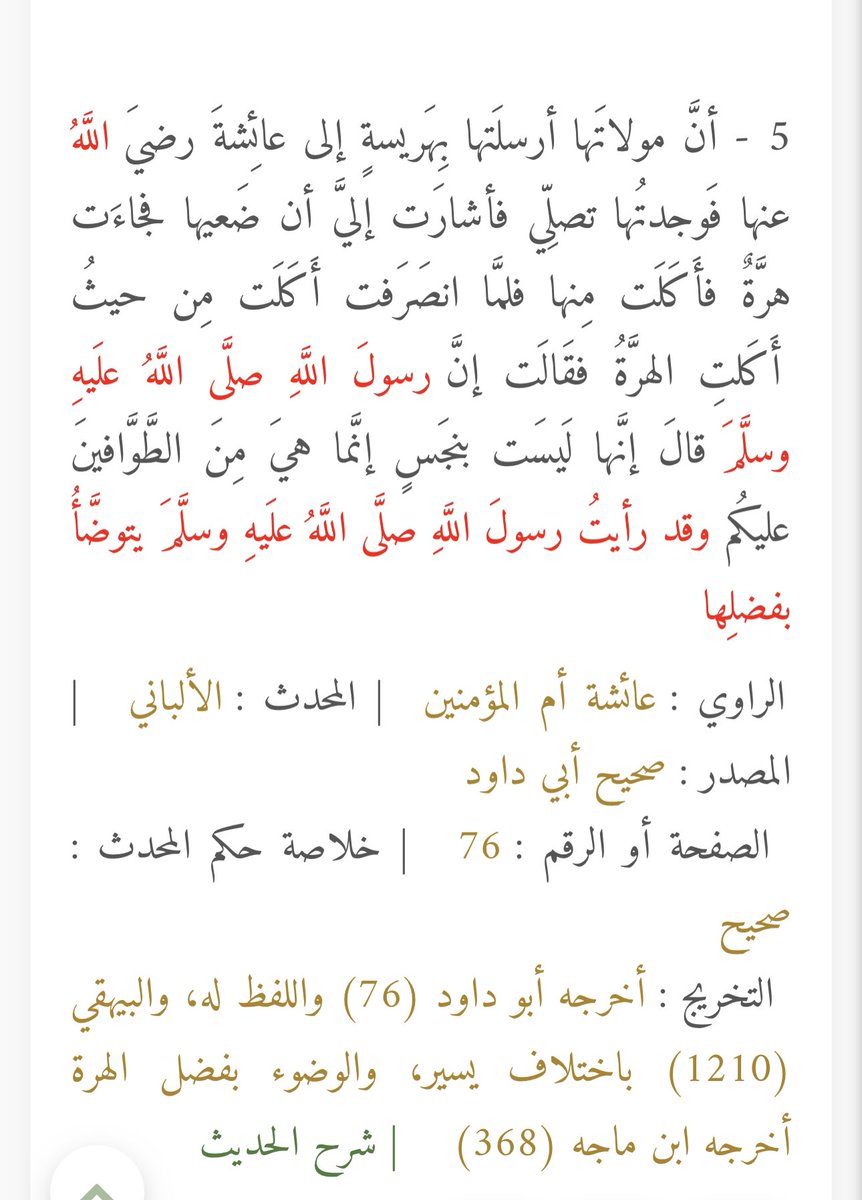 5 - أنَّ مولاتَها أرسلَتها بِهَريسةٍ إلى عائِشةَ رضيَ اللَّهُ
عنها فَوجدتُها تصلِّي فأشارَت إليَّ أن ضَعيها فجاءَت
هرَّةٌ فأَكَلَت مِنها فلمَّا انصَرَفت أَكَلَت مِن حيثُ
أَكَلتِ الهرَّةُ فقَالَت إنَّ رسولَ اللَّهِ صلَّى اللَّهُ علَيهِ
وسلَّمَ قالَ إنَّها لَيسَت بنجَسٍ إنَّما هيَ مِنَ الطَّوَّافينَ
عليكُم وقد رأيتُ رسولَ اللَّهِ صلَّى اللَّهُ علَيهِ وسلَّمَ يتوضَّأُ
بفضلِها
الراوي : عائشة أم المؤمنين | المحدث : الألباني |
المصدر : صحيح أبي داود
الصفحة أو الرقم : 76 | خلاصة حكم المحدث :
صحيح
التخريج : أخرجه أبو داود (76) واللفظ له، والبيهقي
(1210) باختلاف يسير، والوضوء بفضل الهرة
أخرجه ابن ماجه (368) | شرح الحديث